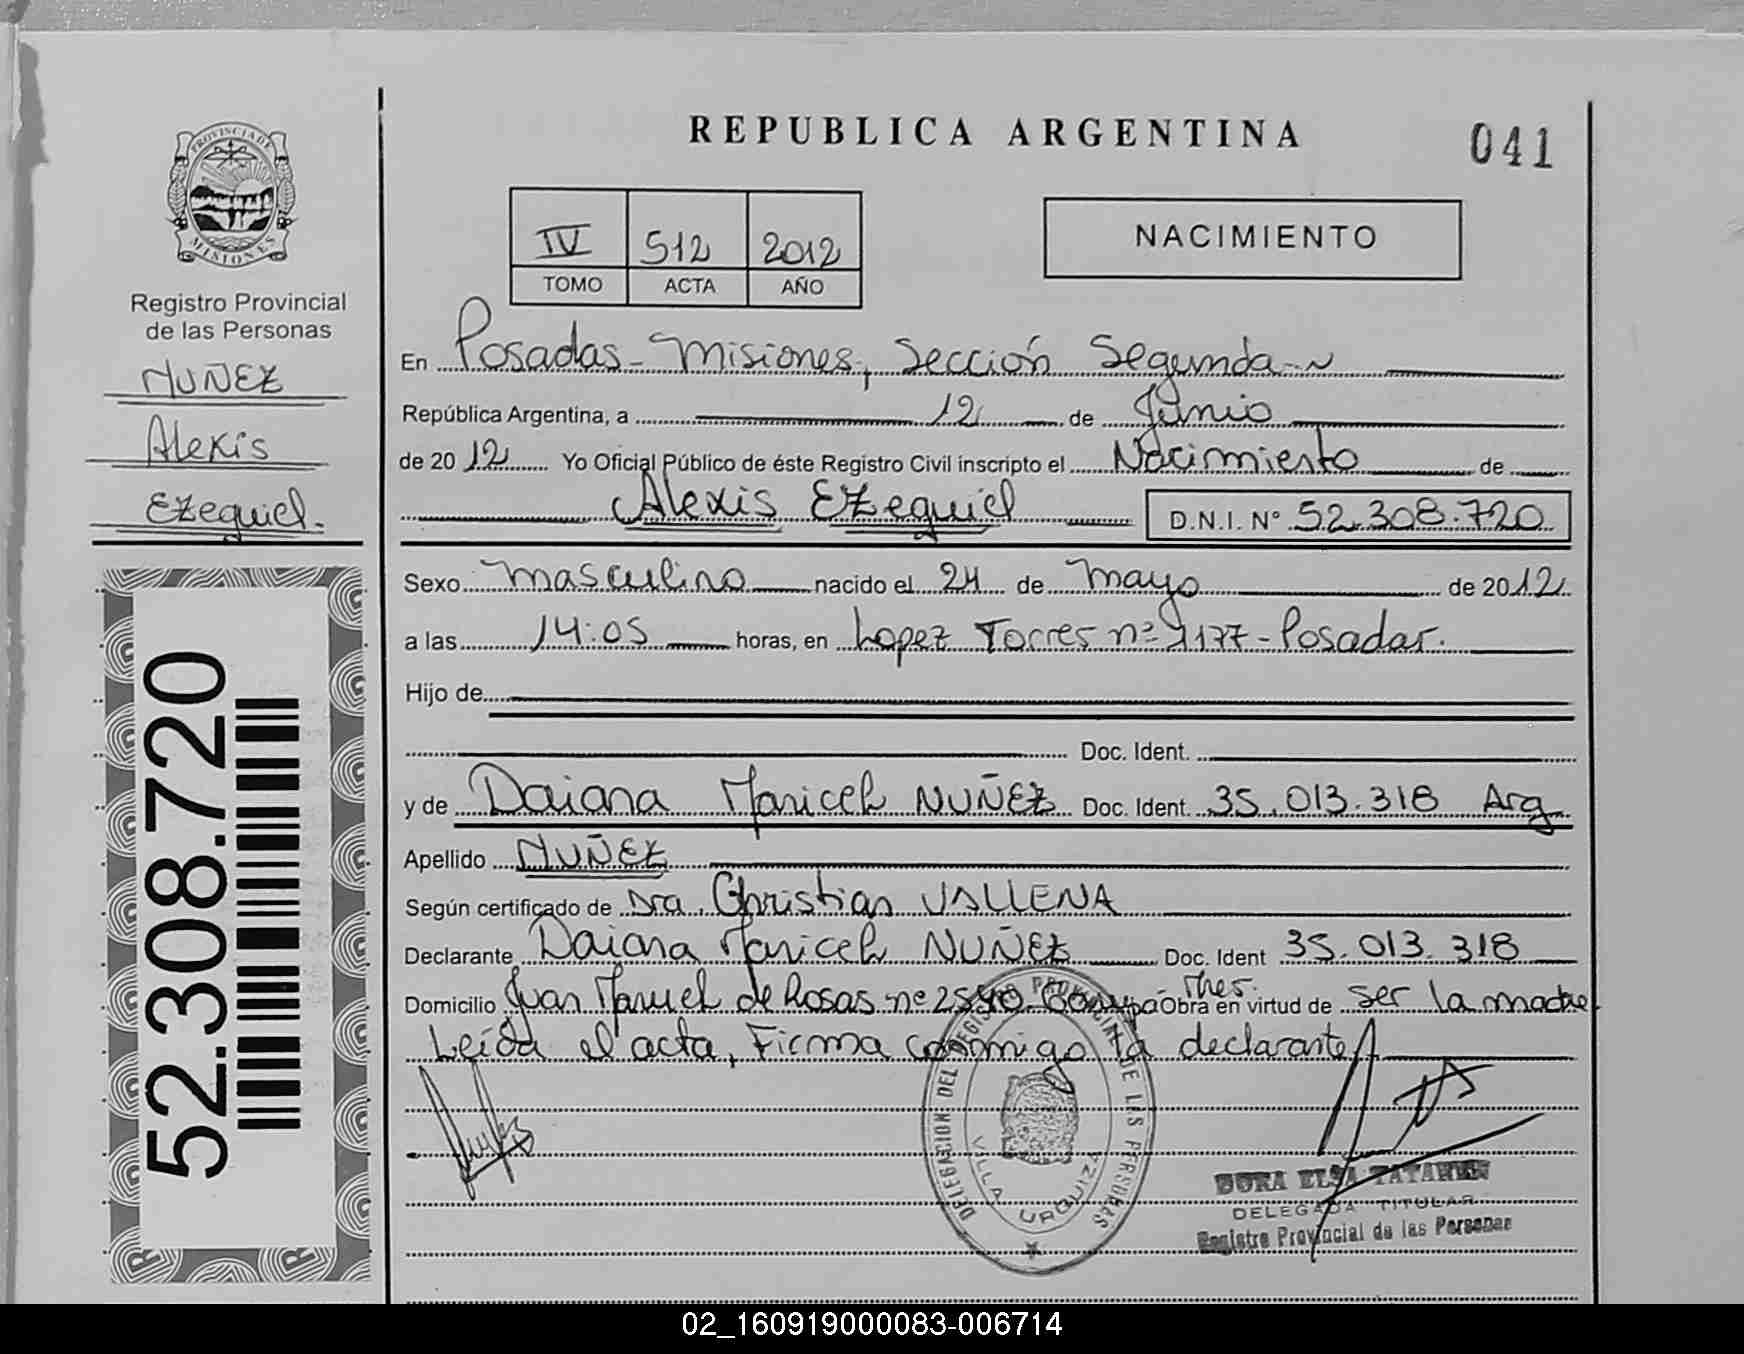 REPUBLICA ARGENTINA
041
PROVINCIA DE
MISIONES
Registro Provincial
de las Personas
NUÑEZ
Alexis
Ezequiel.
52.308.720
IV 512 2012
TOMO ACTA AÑO
NACIMIENTO
En Posadas - Misiones, Sección Segunda
República Argentina, a 12 de Junio
de 2012 Yo Oficial Público de éste Registro Civil inscripto el Nacimiento de
Alexis Ezequiel D.N.I. N° 52.308.720
Sexo Masculino nacido el 24 de Mayo de 2012
a las 14:05 horas, en Lopez Torres nº 1177 - Posadas.
Hijo de
Doc. Ident.
y de Daiana Maricel NUÑEZ Doc. Ident. 35.013.318 Arg
Apellido NUÑEZ
Según certificado de Dra. Christian
Declarante Daiana Maricel NUÑEZ Doc. Ident 35.013.318
Domicilio Juan Manuel de Rosas nº Obra en virtud de ser la madre
Leída el acta, Firma conmigo la declarante
DELEGACION DEL REGISTRO PROVINCIAL DE LAS PERSONAS
VILLA URQUIZA
DORA ELSA
DELEGADA TITULAR
Registro Provincial de las Personas
02_160919000083-006714